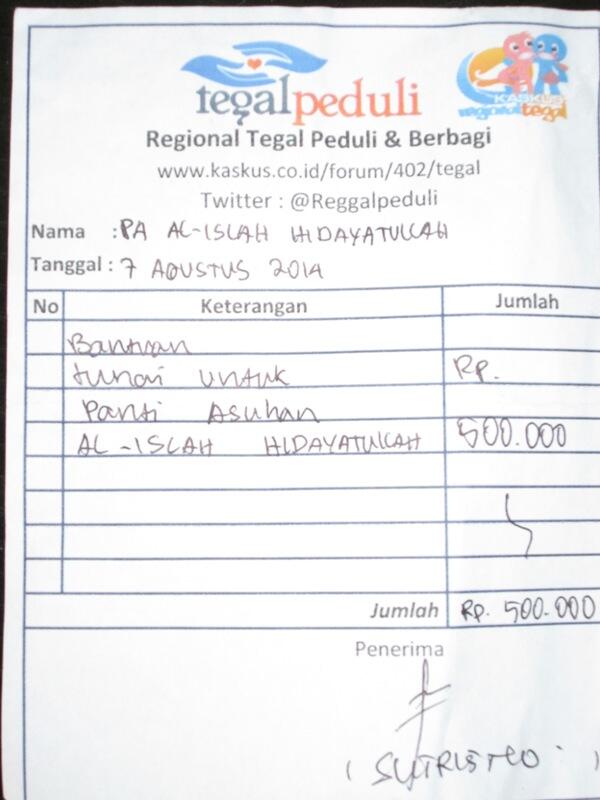 tegalpeduli
KASKUS
regional tegal
Regional Tegal Peduli & Berbagi
www.kaskus.co.id/forum/402/tegal
Twitter : @Reggalpeduli
Nama : PA AL-ISLAH HIDAYATULLAH
Tanggal : 7 AGUSTUS 2014
No Keterangan Jumlah
Bantuan
tunai untuk Rp.
Panti Asuhan
AL-ISLAH HIDAYATULLAH 500.000
Jumlah Rp. 500.000
Penerima
( SUTRISNO )